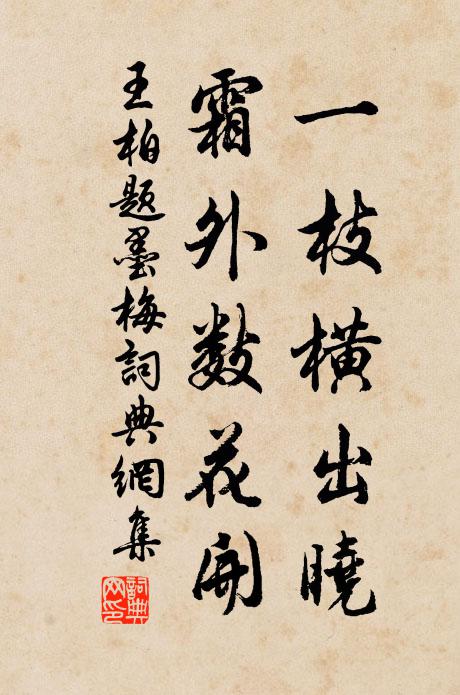 一枝橫出曉
霜外數花開
王柏題墨梅詞典網集
詞典網印